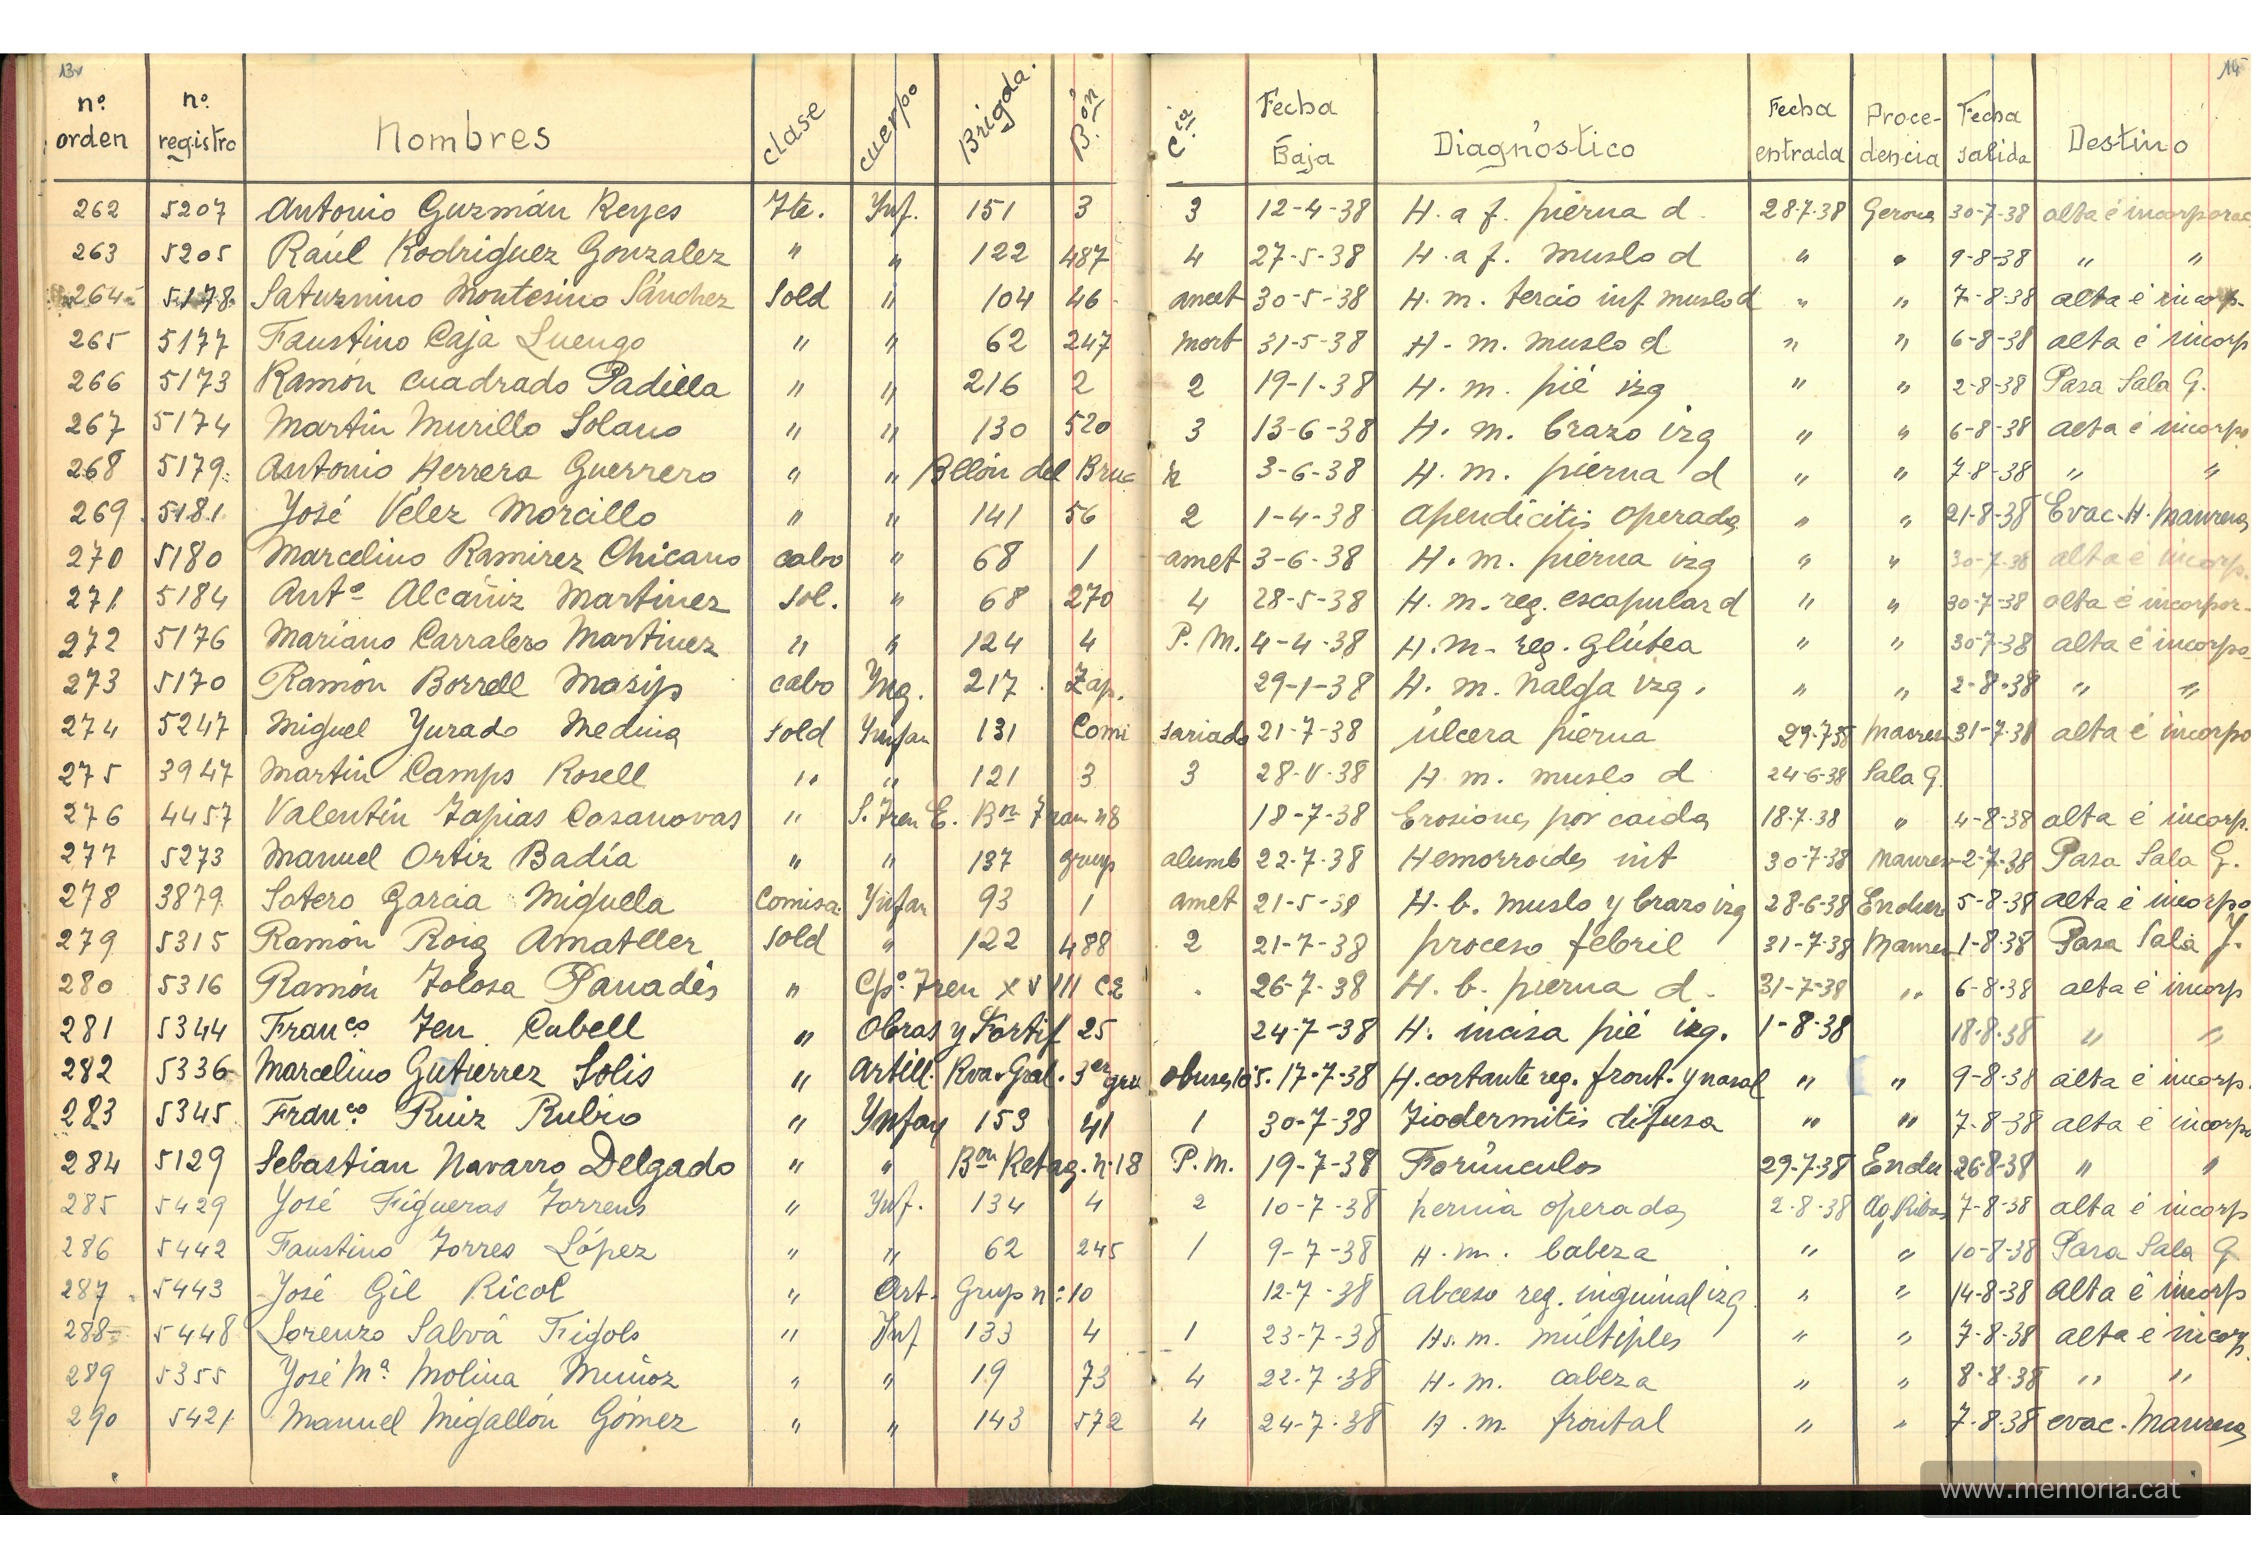 13v
14
nº orden nº registro Nombres clase cuerpo Brigda. B.ón C.ia Fecha Baja Diagnóstico Fecha entrada Procedencia Fecha salida Destino
262 5207 Antonio Guzmán Reyes Tte. Ynf. 151 3 3 12-4-38 H. a f. pierna d. 28-7-38 Gerona 30-7-38 alta é incorporac
263 5205 Raúl Rodriguez Gonzalez " " 122 487 4 27-5-38 H. a f. muslo d " " 9-8-38 " "
264 5178 Saturnino Montesino Sánchez Sold " 104 46 amet 30-5-38 H. m. tercio inf muslo d " " 7-8-38 alta é incorp.
265 5177 Faustino Caja Luengo " " 62 247 mort 31-5-38 H. m. muslo d " " 6-8-38 alta é incorp
266 5173 Ramón Cuadrado Padilla " " 216 2 2 19-1-38 H. m. pié izq " " 2-8-38 Pasa Sala G.
267 5174 Martin Murillo Solano " " 130 520 3 13-6-38 H. m. brazo izq " " 6-8-38 alta é incorpo
268 5179 Antonio Herrera Guerrero " " Bllón del Bruc h 3-6-38 H. m. pierna d " " 7-8-38 " "
269 5181 José Vélez Morcillo " " 141 56 2 1-4-38 apendicitis operada " " 21-8-38 Evac. H. Manresa
270 5180 Marcelino Ramirez Chicano cabo " 68 1 amet 3-6-38 H. m. pierna izq " " 30-7-38 alta é incorp.
271 5184 Antº Alcañiz Martinez Sol. " 68 270 4 28-5-38 H. m. reg. escapular d " " 30-7-38 alta é incorpor-
272 5176 Mariano Carralero Martinez " " 124 4 P. M. 4-4-38 H. m. reg. glútea " " 30-7-38 alta é incorpo
273 5170 Ramón Borrell Masip cabo Yng. 217 Zap. 29-1-38 H. m. nalga izq. " " 2-8-38 " "
274 5247 Miguel Yurado Medina sold Ynfan 131 Comi sariado 21-7-38 úlcera pierna 29-7-38 Manresa 31-7-38 alta é incorpo
275 3947 Martin Camps Rosell " " 121 3 3 28-V-38 H m. muslo d 24-6-38 Sala G
276 4457 Valentín Tapias Casanovas " S. Tren E. Bon Tran n8 18-7-38 Erosiones por caida 18-7-38 " 4-8-38 alta é incorp.
277 5273 Manuel Ortiz Badía " " 137 grup alumb 22-7-38 Hemorroides int 30-7-38 Manres 2-7-38 Pasa Sala G.
278 3879 Sotero Garcia Miguela Comisa. Ynfan 93 1 amet 21-5-38 H. b. muslo y brazo izq 28-6-38 5-8-38 alta é incorpo
279 5315 Ramón Roig Amatller sold " 122 488 2 21-7-38 proceso febril 31-7-38 Manres 1-8-38 Pasa Sala J.
280 5316 Ramón Tolosa Panadés " Cpº Tren XVIII CE 26-7-38 H. b. pierna d. 31-7-38 " 6-8-38 alta é incorp
281 5344 Franco Ten Cubell " Obras y Fortif 25 24-7-38 H. incisa pié izq. 1-8-38 18-8-38 " "
282 5336 Marcelino Gutierrez Solis " Artill. Rva. Gral. 3er gru obuses 105. 17-7-38 H. cortante reg. front. y nasal " " 9-8-38 alta é incorp.
283 5345 Franco Ruiz Rubio " Ynfan 153 41 1 30-7-38 Tiodermitis difusa " " 7-8-38 alta é incorpo
284 5129 Sebastian Navarro Delgado " " Bon Retag. n. 18 P. M. 19-7-38 Forúnculos 29-7-38 26-8-38 " "
285 5429 José Figueras Torrens " Ynf. 134 4 2 10-7-38 hernia operada 2-8-38 Ag. Ribas 7-8-38 alta é incorp
286 5442 Faustino Torres López " " 62 245 1 9-7-38 H. m. cabeza " " 10-8-38 Pasa Sala G
287 5443 José Gil Ricol " Art. Grup nº 10 12-7-38 abceso reg. inguinal izq " " 14-8-38 Alta é incorp
288 5448 Lorenzo Salvá Trigols " Ynf 133 4 1 23-7-38 Hs. m. múltiples " " 7-8-38 alta é incorp.
289 5355 José Mª Molina Muñoz " " 19 73 4 22-7-38 H. m. cabeza " " 8-8-38 " "
290 5421 Manuel Migallón Gómez " " 143 572 4 24-7-38 H. m. frontal " " 7-8-38 evac. Manresa
www.memoria.cat